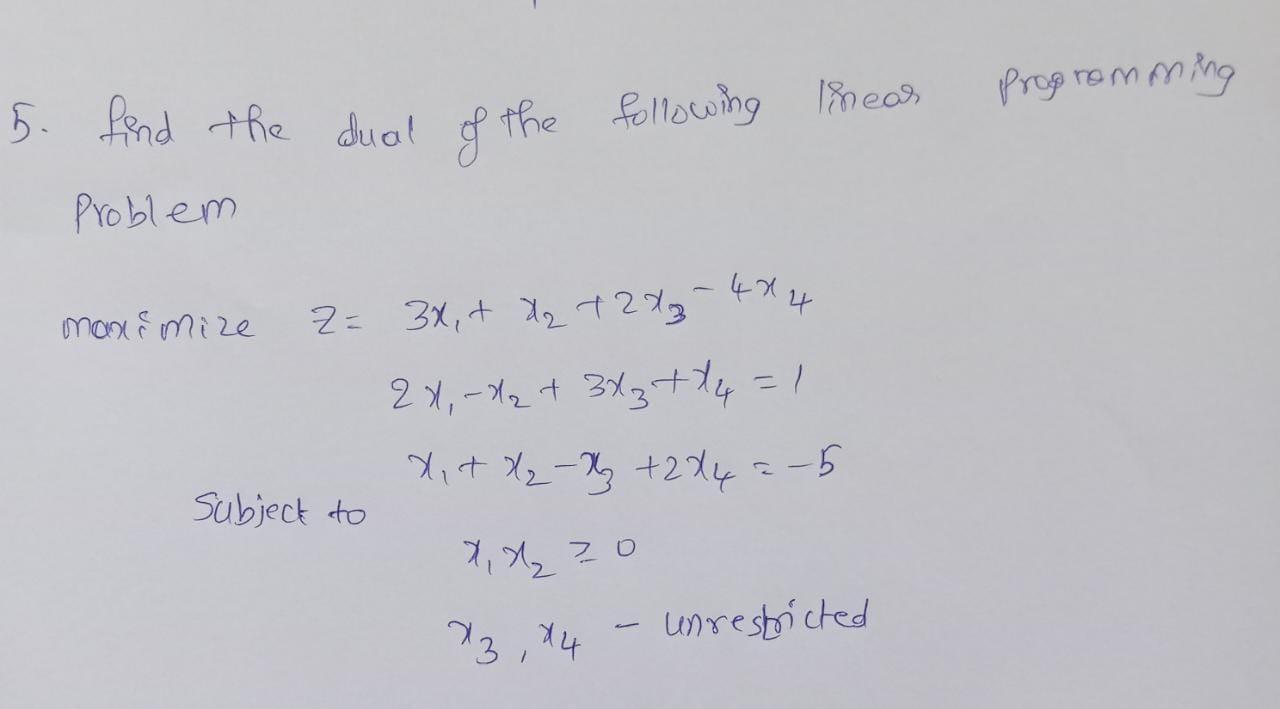 5. find the dual of the following linear programming
Problem
maximize Z = 3x₁ + x₂ + 2x₃ - 4x₄
2x₁ - x₂ + 3x₃ + x₄ = 1
x₁ + x₂ - x₃ + 2x₄ = -5
Subject to
x₁ x₂ ≥ 0
x₃, x₄ - unrestricted